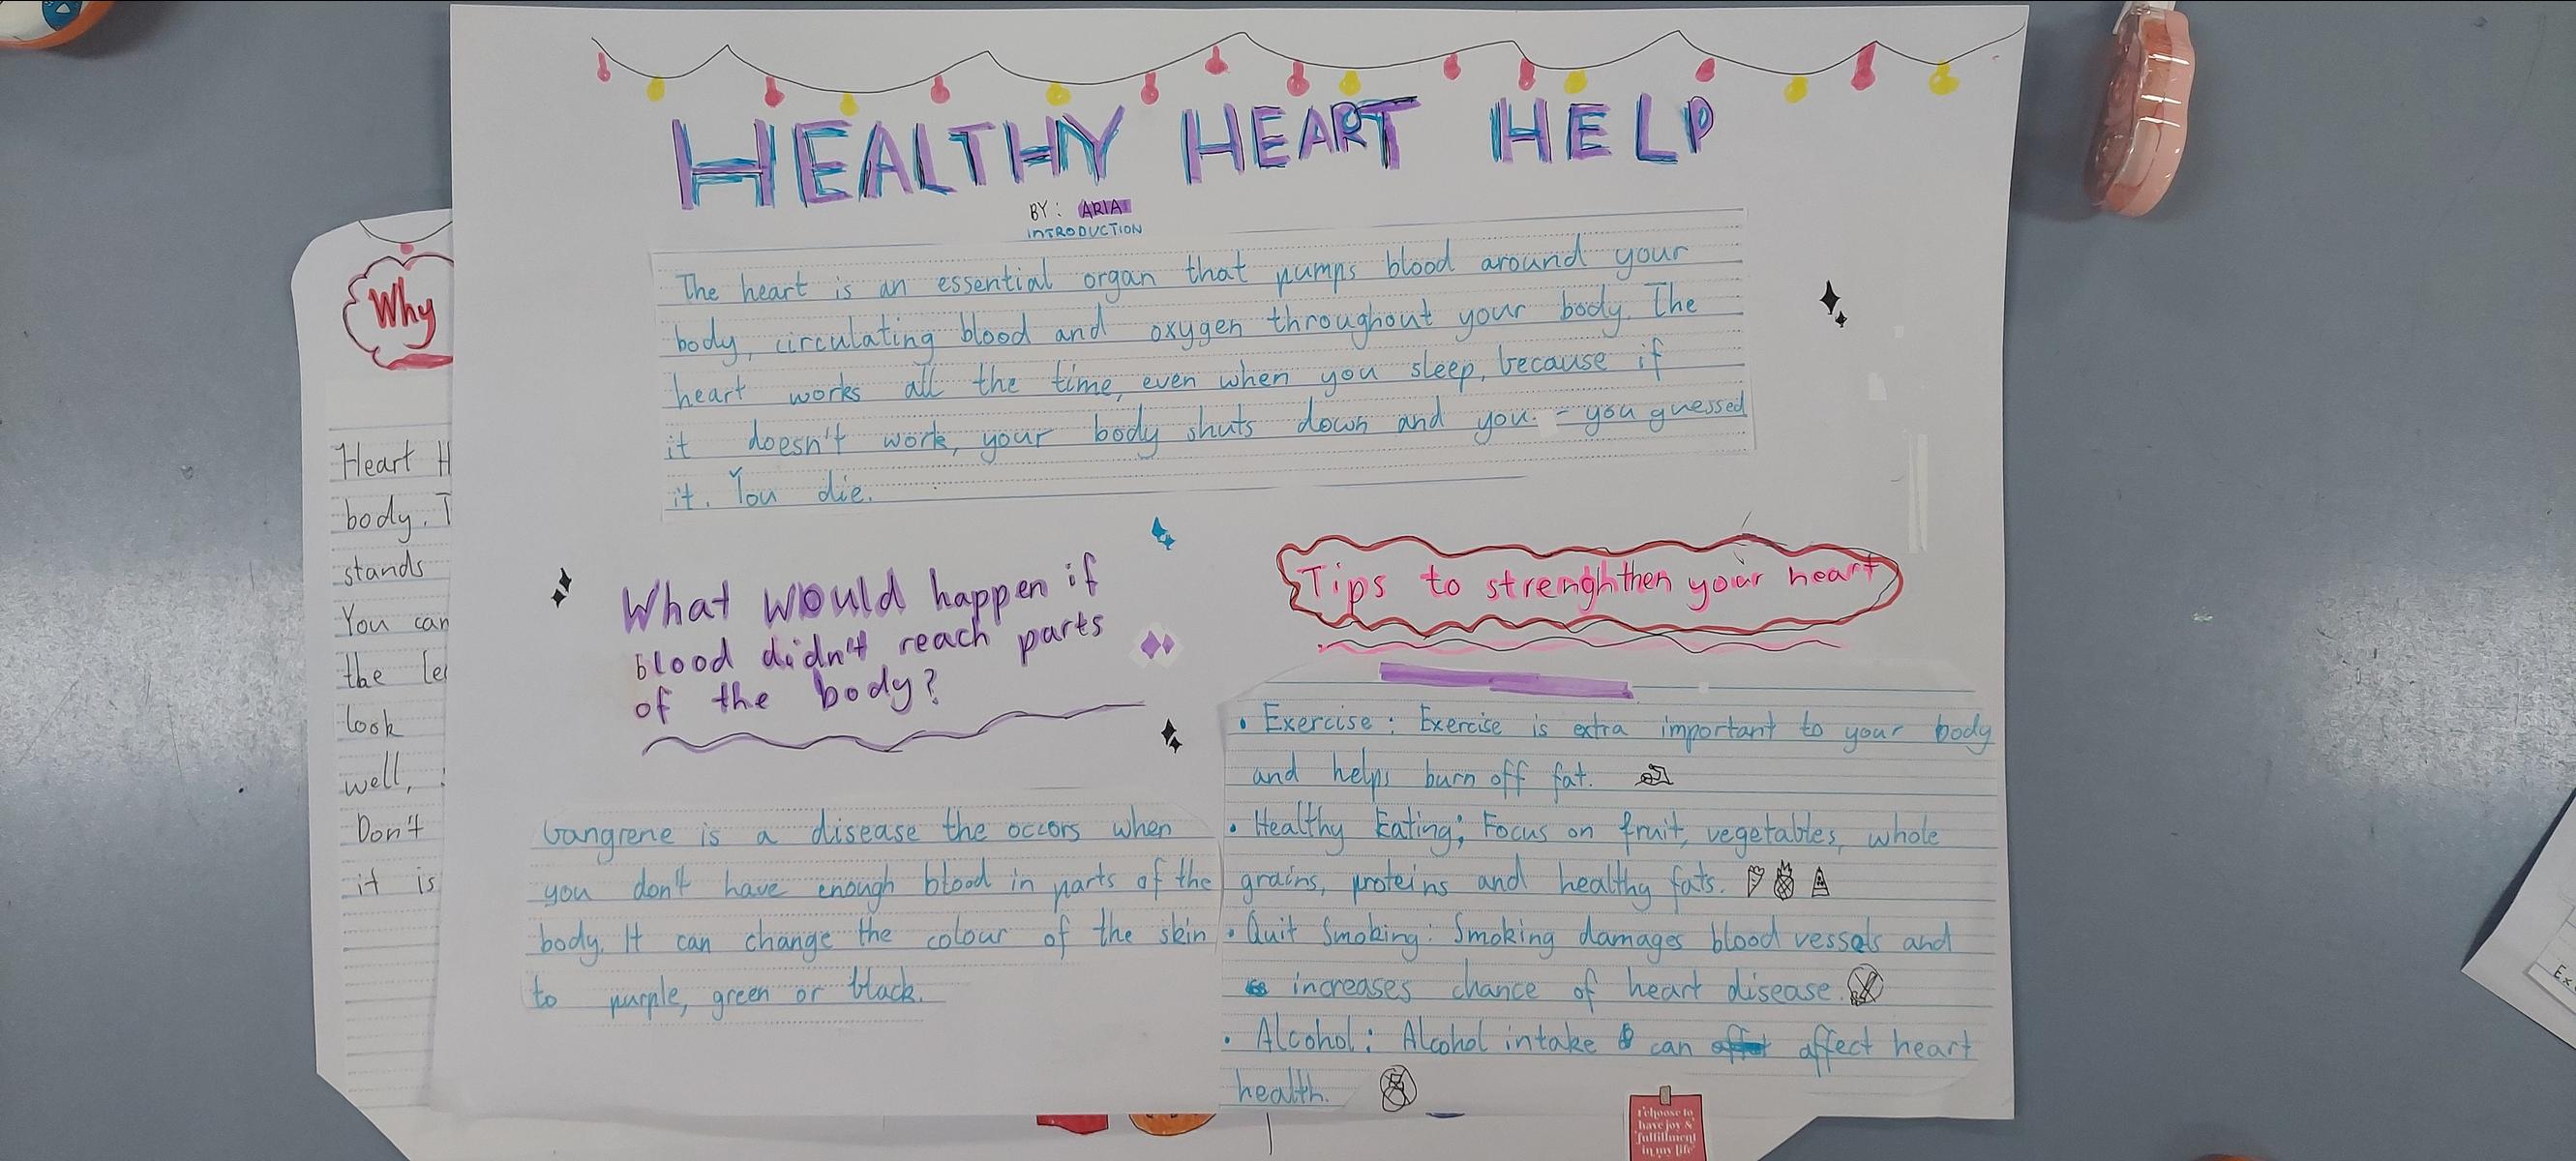 HEALTHY HEART HELP
BY: ARIA
INTRODUCTION
The heart is an essential organ that pumps blood around your
body, circulating blood and oxygen throughout your body. The
heart works all the time, even when you sleep, because if
it doesn't work, your body shuts down and you. - you guessed
it. You die.
What would happen if
blood didn't reach parts
of the body?
Gangrene is a disease the occors when
you don't have enough blood in parts of the
body. It can change the colour of the skin
to purple, green or black.
Tips to strenghthen your heart
• Exercise: Exercise is extra important to your body
and helps burn off fat.
• Healthy Eating; Focus on fruit, vegetables, whole
grains, proteins and healthy fats.
• Quit Smoking: Smoking damages blood vessels and
increases chance of heart disease.
• Alcohol: Alcohol intake can affect heart
health.
Why
Heart H
body. T
stands
You can
the
look
well,
Don't
it is
I choose to
have joy &
fulfillment
in my life